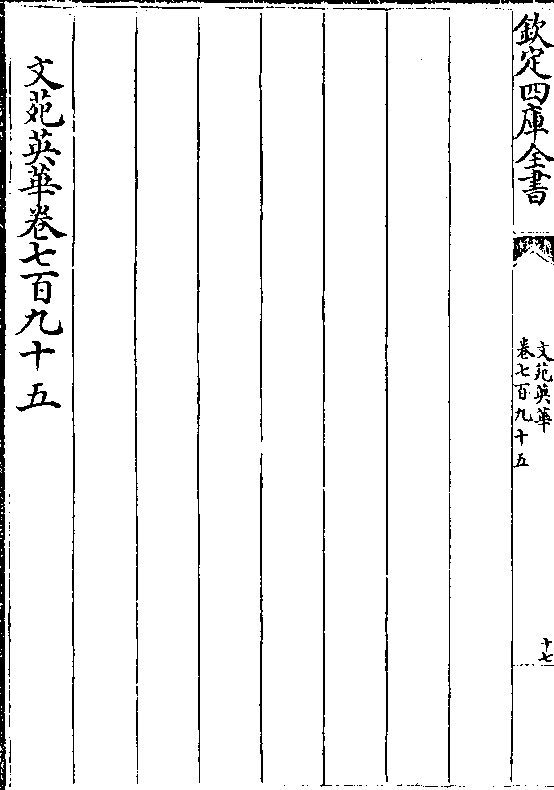 欽定四庫全書
文苑英華
卷七百九十五
十七
文苑英華卷七百九十五